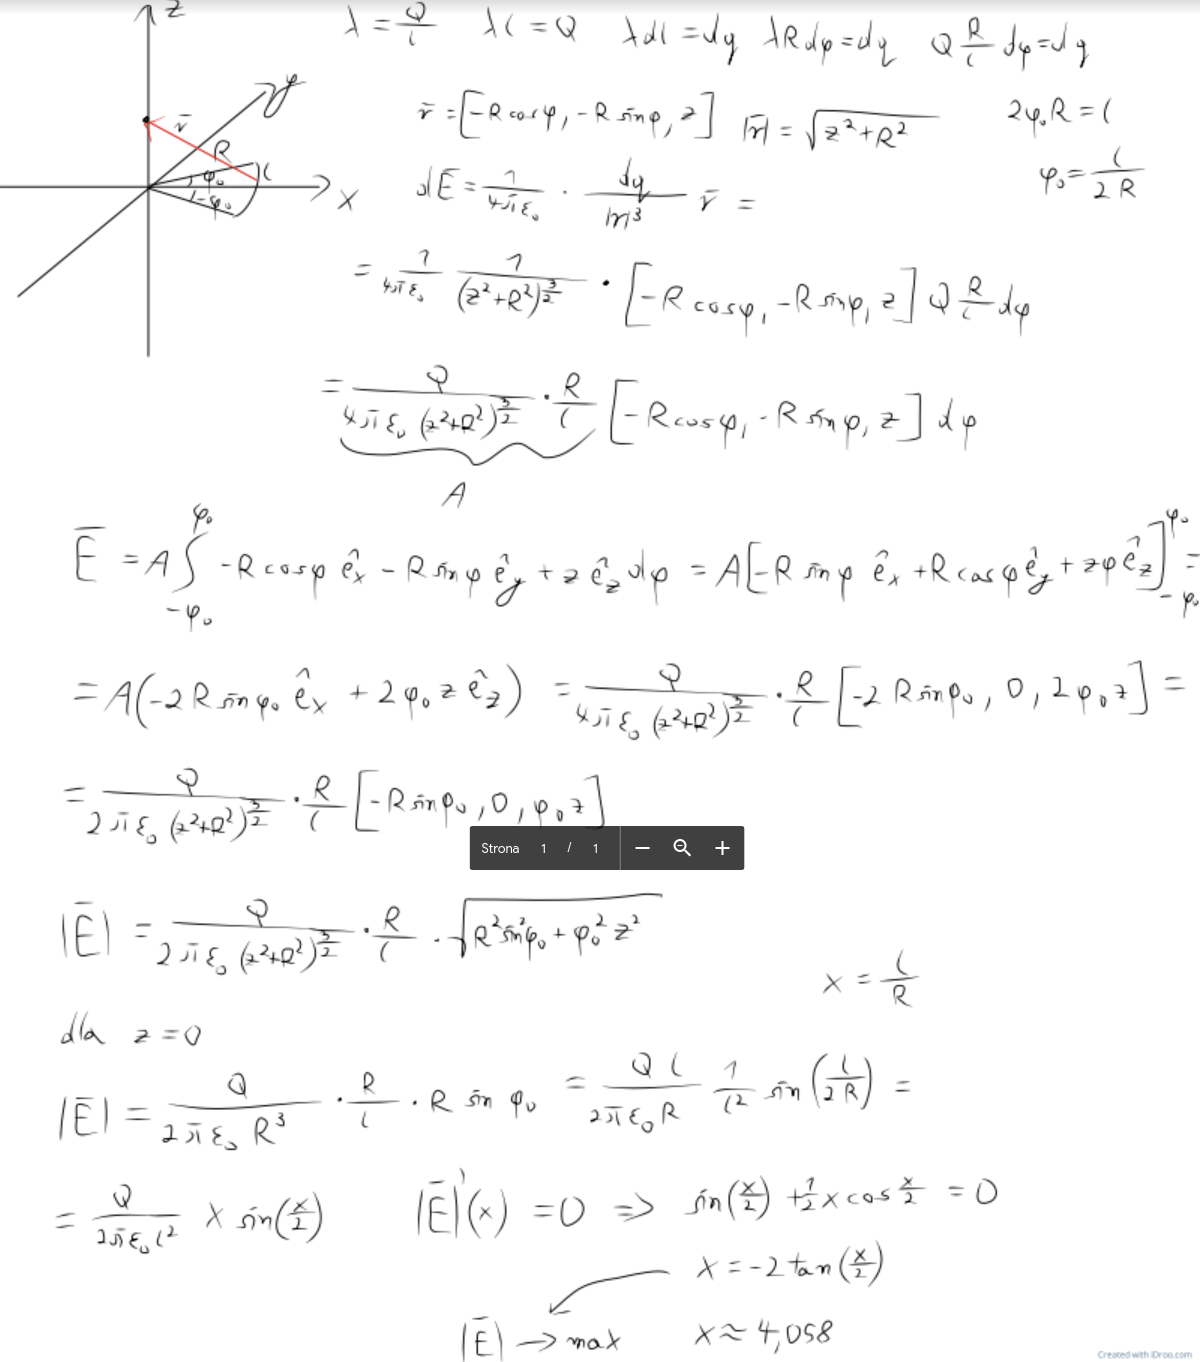 z
y
x
r̄
R
l
φ₀
-φ₀
λ = Q/l   λl = Q   λdl = dq   λRdφ = dq   Q R/l dφ = dq
r̄ = [-R cosφ, -R sinφ, z]   |r̄| = √(z²+R²)   2φ₀R = l
φ₀ = l/(2R)
dĒ = 1/(4πε₀) · dq/|r|³ r̄ =
= 1/(4πε₀) 1/(z²+R²)^(3/2) · [-R cosφ, -R sinφ, z] Q R/l dφ
= Q/(4πε₀ (z²+R²)^(3/2)) · R/l [-R cosφ, -R sinφ, z] dφ
A
Ē = A ∫_{-φ₀}^{φ₀} -R cosφ ê_x - R sinφ ê_y + z ê_z dφ = A[-R sinφ ê_x + R cosφ ê_y + zφ ê_z]_{-φ₀}^{φ₀} =
= A(-2R sinφ₀ ê_x + 2φ₀ z ê_z) = Q/(4πε₀ (z²+R²)^(3/2)) · R/l [-2R sinφ₀, 0, 2φ₀z] =
= Q/(2πε₀ (z²+R²)^(3/2)) · R/l [-R sinφ₀, 0, φ₀z]
Strona 1 / 1
|Ē| = Q/(2πε₀ (z²+R²)^(3/2)) · R/l · √(R² sin²φ₀ + φ₀² z²)
x = l/R
dla z = 0
|Ē| = Q/(2πε₀ R³) · R/l · R sin φ₀ = Q l/(2πε₀R) 1/l² sin(l/2R) =
= Q/(2πε₀l²) x sin(x/2)   |Ē|'(x) = 0 => sin(x/2) + 1/2 x cos x/2 = 0
x = -2 tan(x/2)
|Ē| → max   x ≈ 4,058
Created with iDroo.com